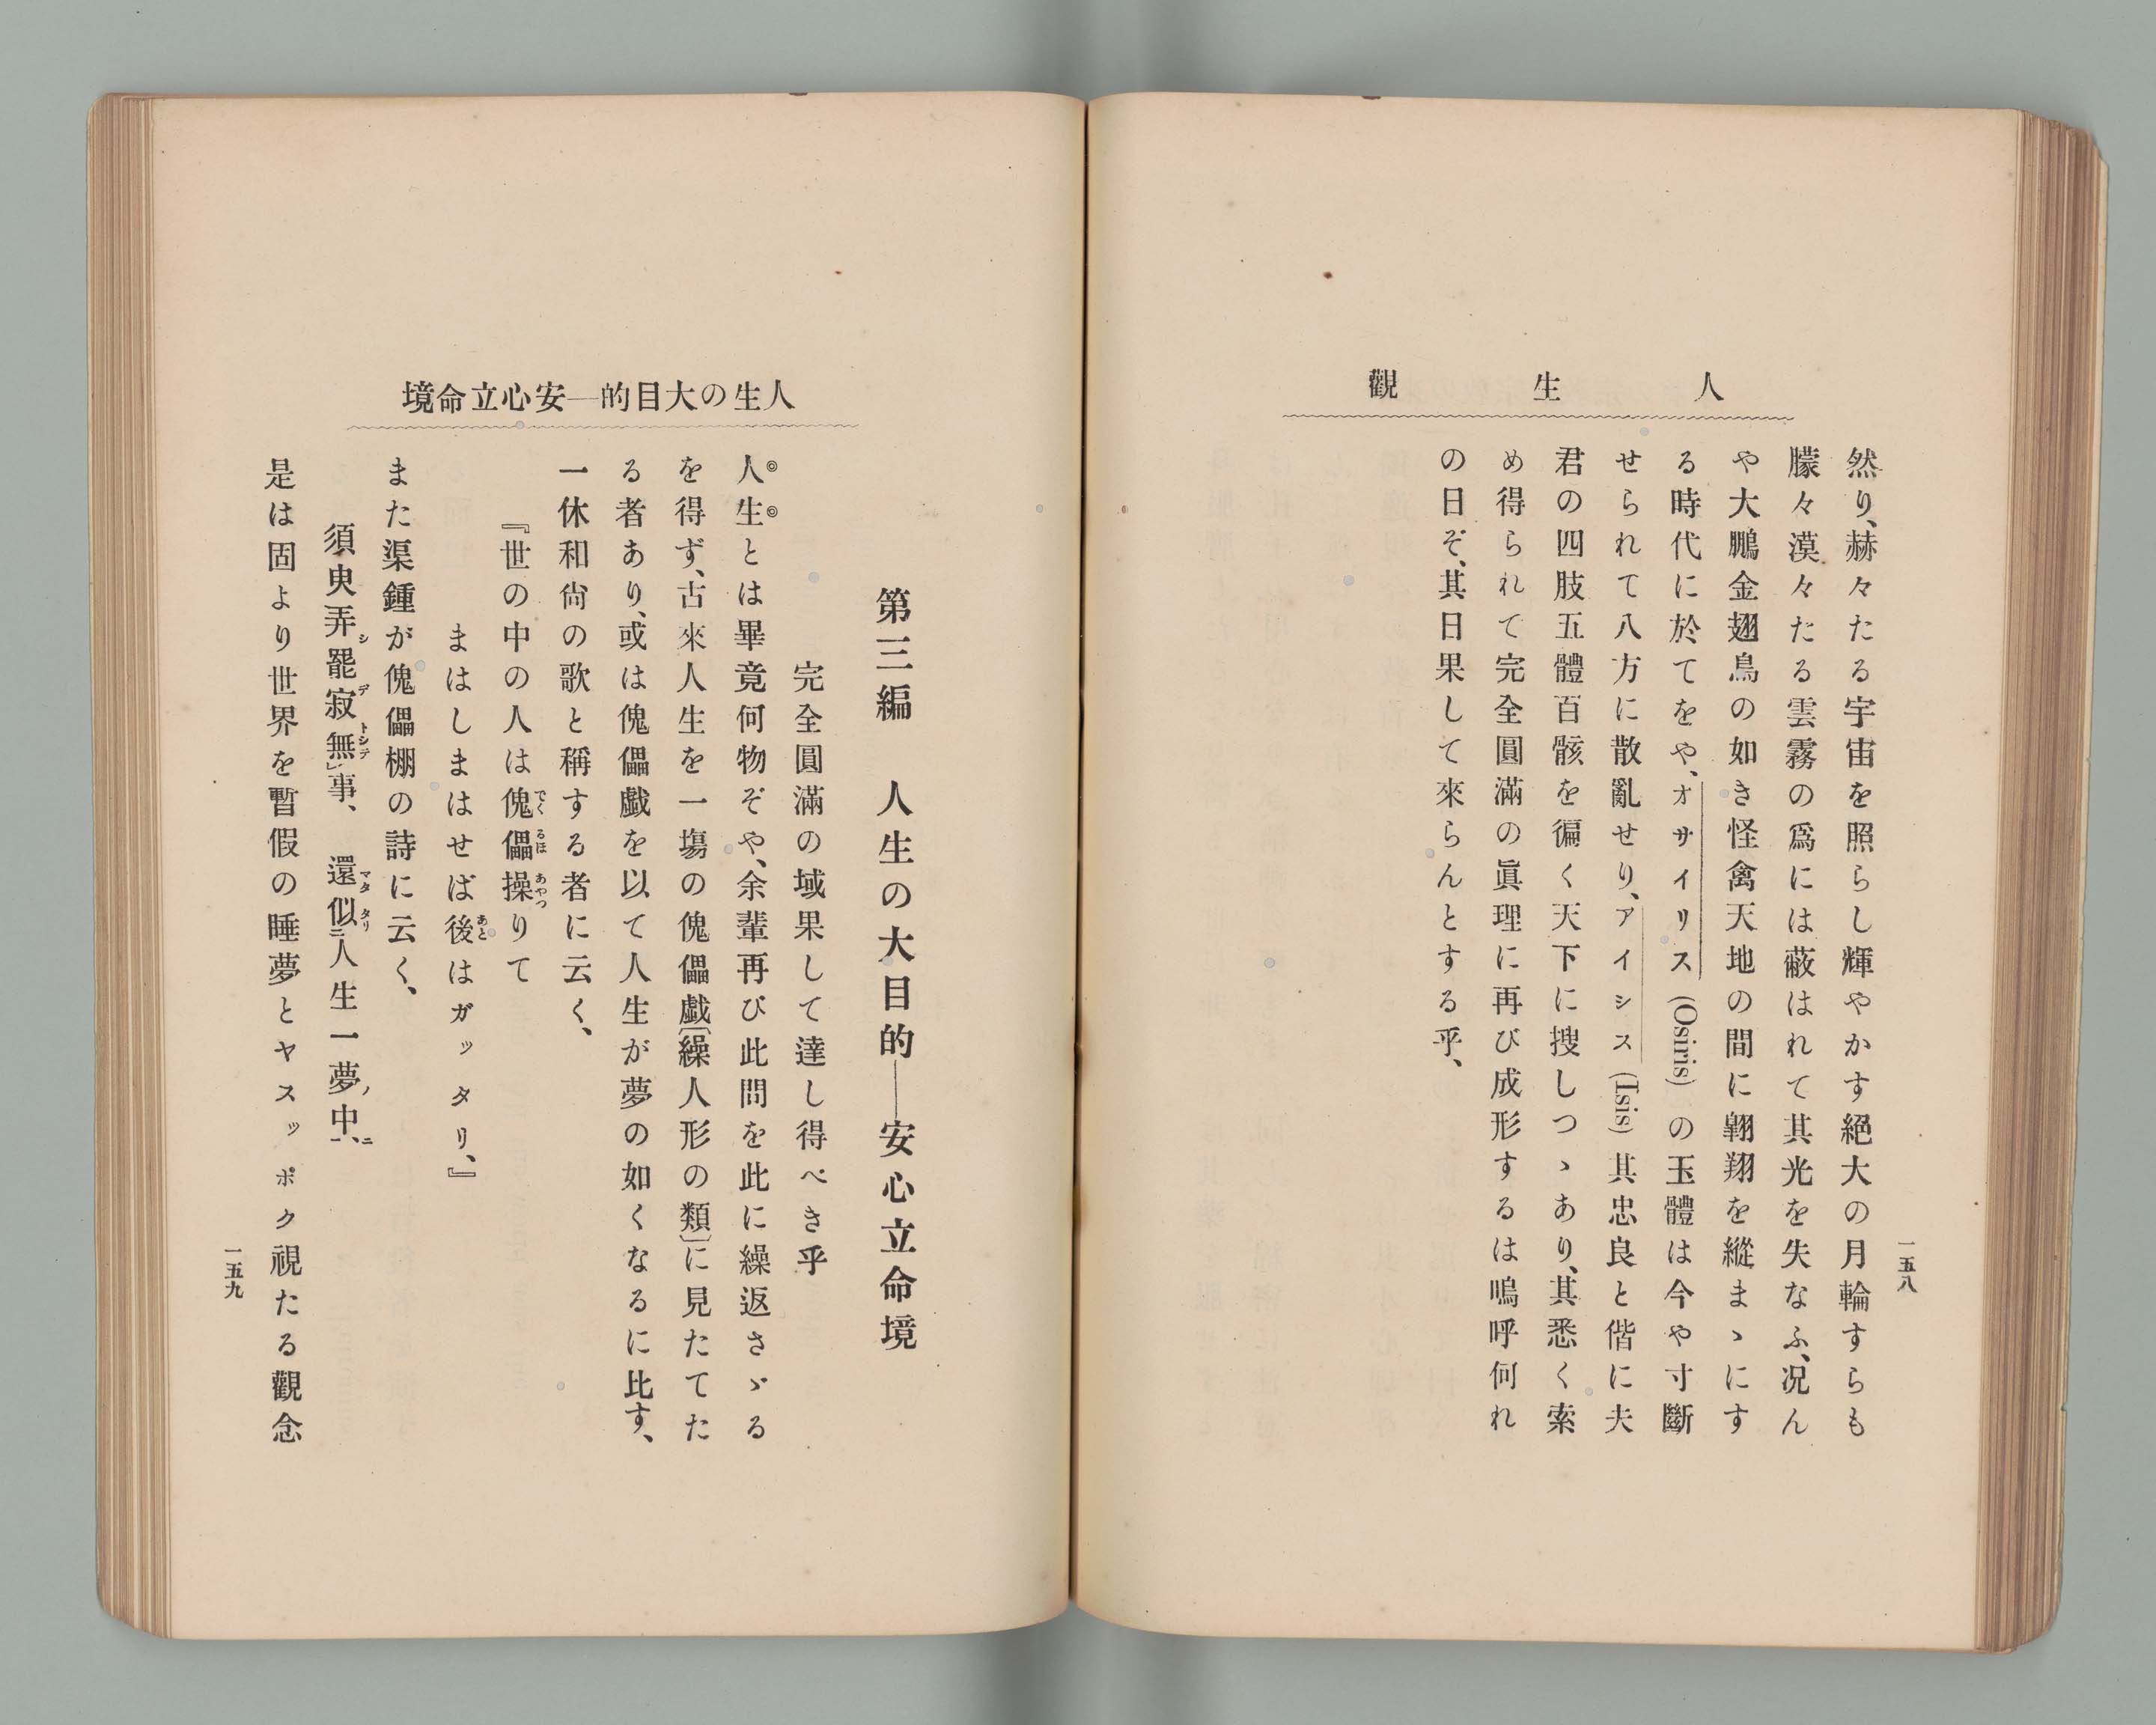 人生觀
然り、赫々たる宇宙を照らし輝やかす絕大の月輪すらも
朦々漠々たる雲霧の爲には蔽はれて其光を失なふ、况ん
や大鵬金翅鳥の如き怪禽天地の間に翺翔を縱まゝにす
る時代に於てをや、オサイリス (Osiris) の玉體は今や寸斷
せられて八方に散亂せり、アイシス (Isis) 其忠良と偕に夫
君の四肢五體百骸を徧く天下に搜しつゝあり、其悉く索
め得られて完全圓滿の眞理に再び成形するは嗚呼何れ
の日ぞ、其日果して來らんとする乎、
一五八
人生の大目的―安心立命境
第三編　人生の大目的―安心立命境
完全圓滿の域果して達し得べき乎
人生とは畢竟何物ぞや、余輩再び此問を此に繰返さゞる
を得ず、古來人生を一塲の傀儡戯〔繰人形の類〕に見たてた
る者あり、或は傀儡戯を以て人生が夢の如くなるに比す、
一休和尙の歌と稱する者に云く、
『世の中の人は傀儡操りて
まはしまはせば後はガッタリ、』
また渠鍾が傀儡棚の詩に云く、
須臾弄罷寂無事、　還似人生一夢中、
是は固より世界を暫假の睡夢とヤスッポク視たる觀念
一五九